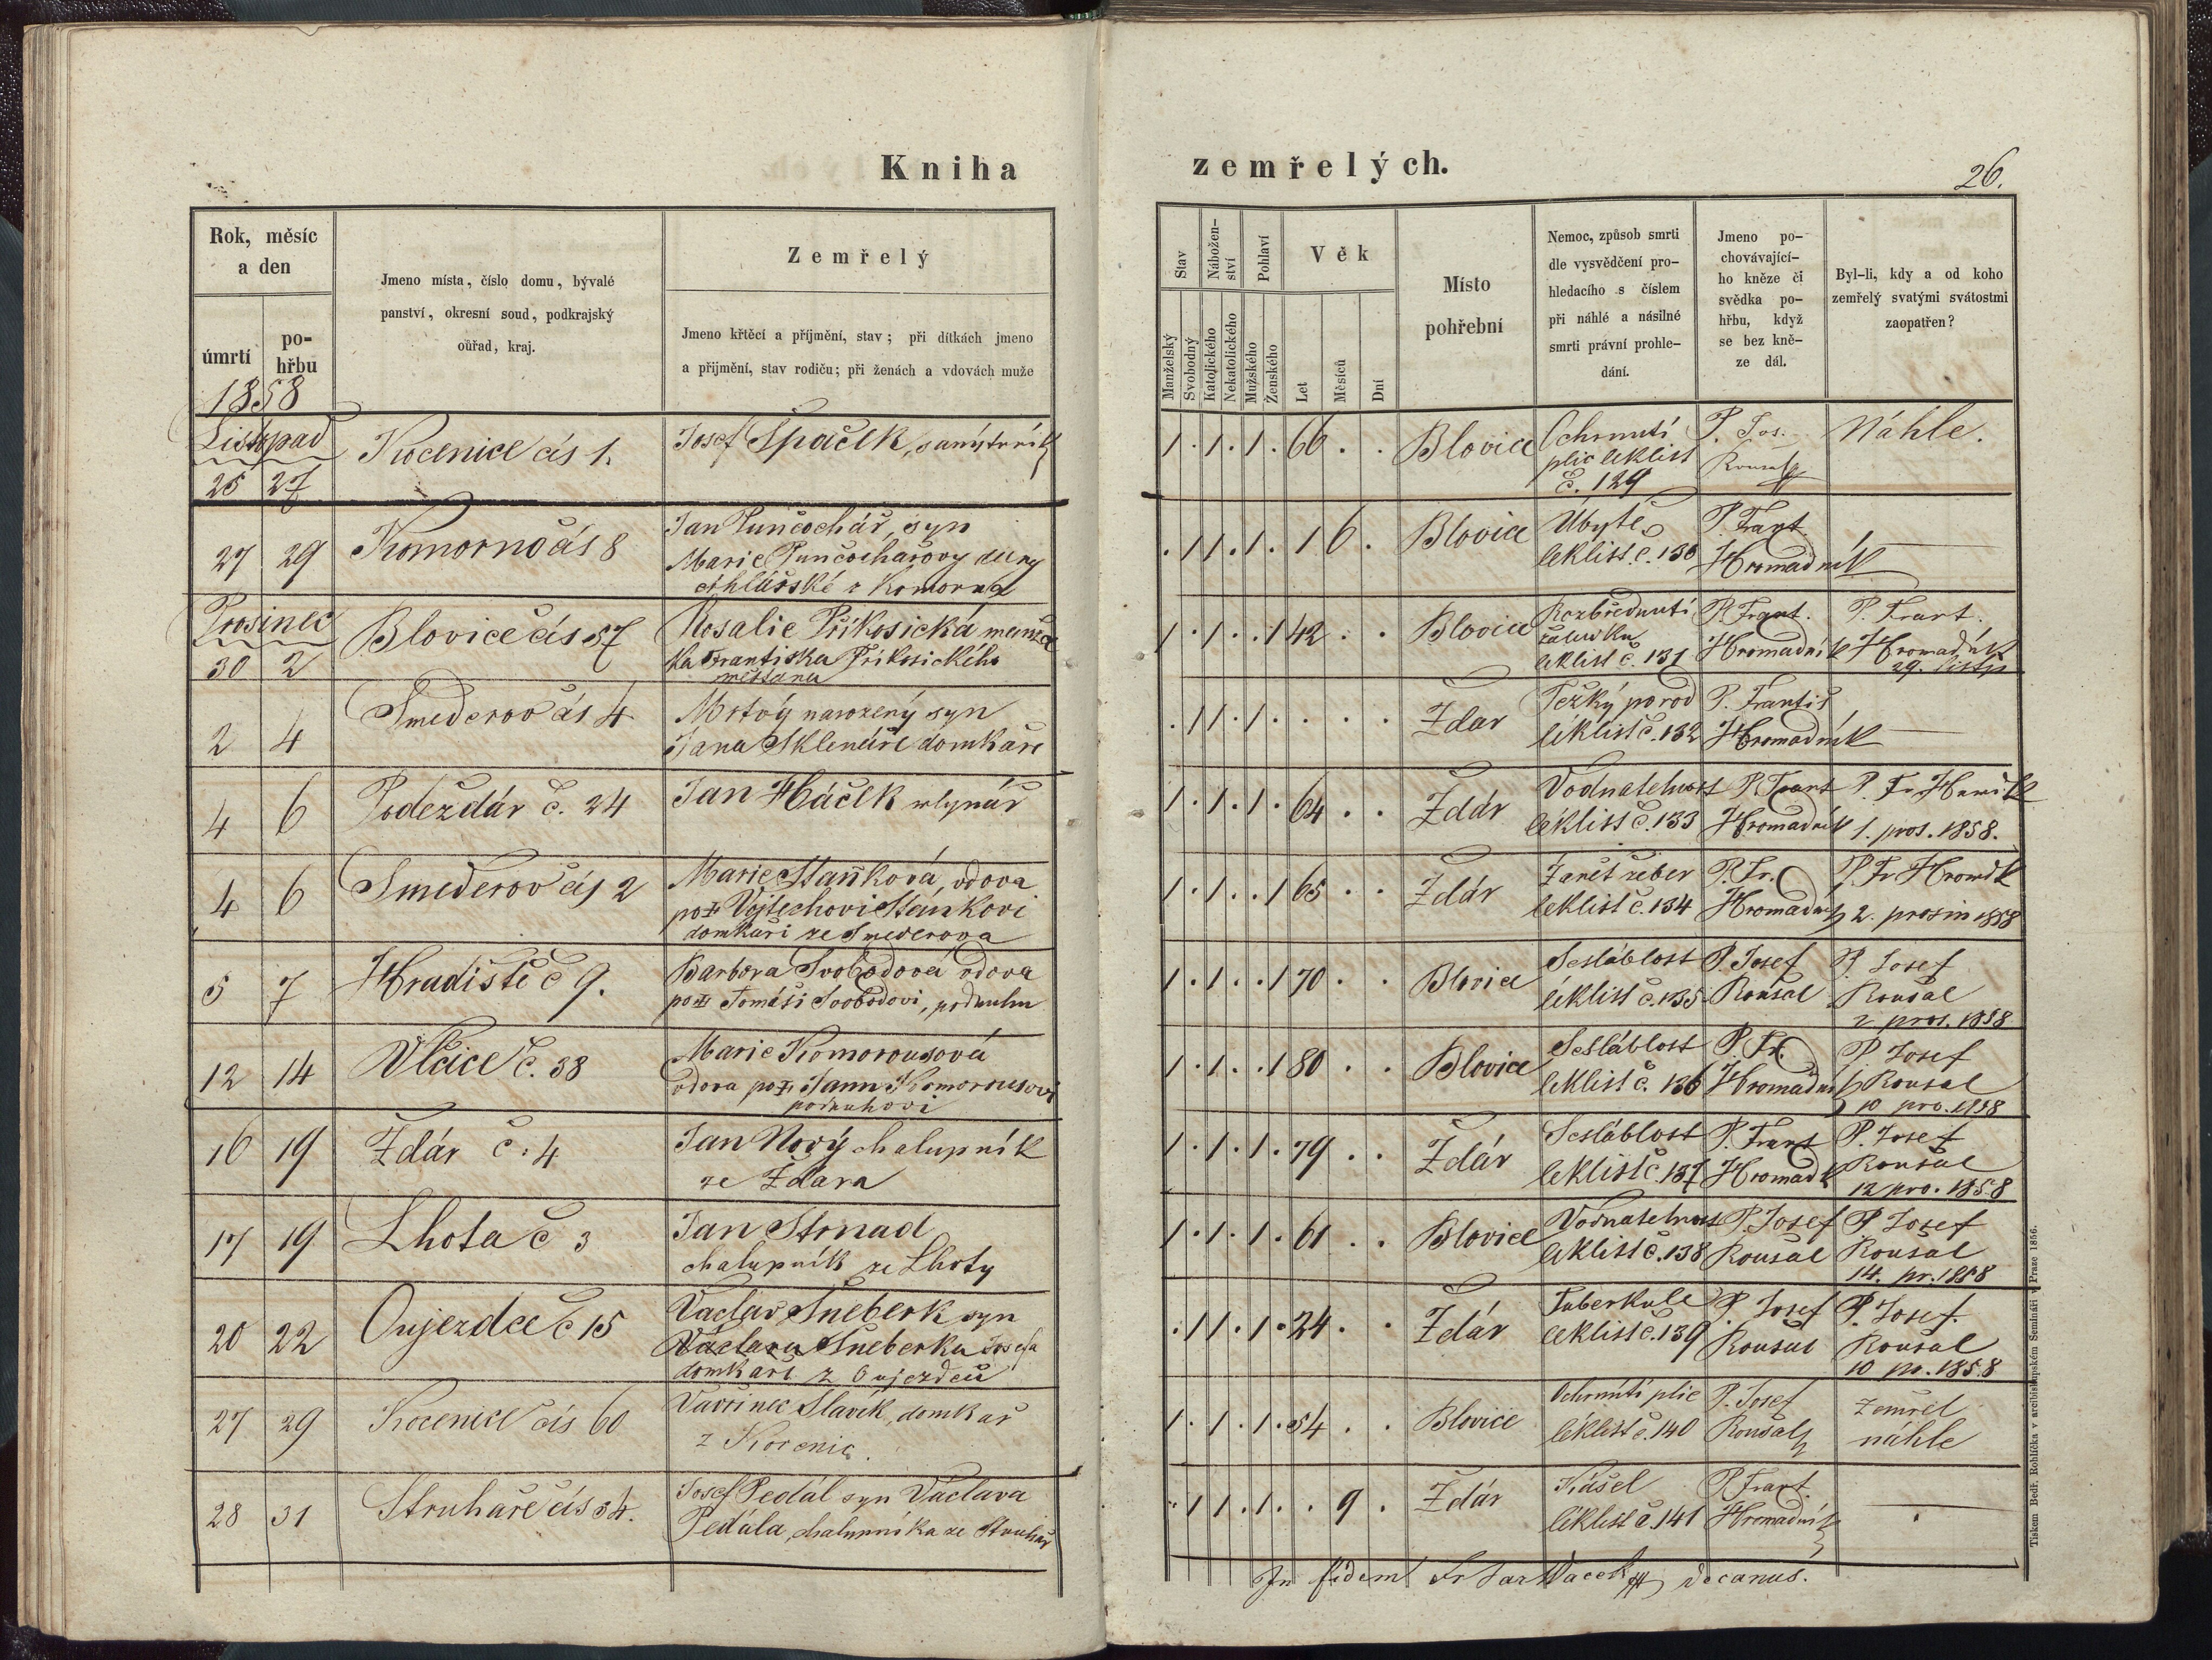 Kniha zemřelých.
26.
Rok, měsíc
a den
úmrtí
po-
hřbu
Jmeno místa, číslo domu, bývalé
panství, okresní soud, podkrajský
ouřad, kraj.
Zemřelý
Jmeno křtěcí a příjmění, stav; při dítkách jmeno
a přijmění, stav rodiču; při ženách a vdovách muže
Stav
Manželský
Svobodný
Nábožen-
ství
Katolického
Nekatolického
Pohlaví
Mužského
Ženského
Věk
Let
Měsíců
Dní
Místo
pohřební
Nemoc, způsob smrti
dle vysvědčení pro-
hledacího s číslem
při náhlé a násilné
smrti právní prohle-
dání.
Jmeno po-
chovávající-
ho kněze či
svědka po-
hřbu, když
se bez kně-
ze dál.
Byl-li, kdy a od koho
zemřelý svatými svátostmi
zaopatřen?
1858
Listopad
25 27
Kocenice čís 1.
Josef Špaček,
1 . 1 . 1 . 66 . .
Blovice
Ochrnutí
plic léklist
č. 129
P. Jos.
Roušal
Náhle.
27 29
Komorno čís 8
Jan Punčochář, syn
Marie Punčochářovy dcery
z Komorna
. 1 1 . 1 . 1 6 .
Blovice
Úbytě
léklist č. 130
P. Frant.
Hromadník
Prosinec
30 2
Blovice čís 57
Rosalie Přikosická manžel
ka Františka Přikosického
měšťana
1 . 1 . . 1 42 . .
Blovice
Rozbřednutí
žaludku
léklist č. 131
P. Frant.
Hromadník
P. Frant.
Hromadník
29. listop
2 4
Smederov čís 4
Mrtvý narozený syn
Jana Sklenáře domkáře
. 1 1 . 1 . . . .
Ždar
Težký porod
léklist č. 132
P. Františ
Hromadník
4 6
Podeždár č. 24
Jan Háček mlynář
1 . 1 . 1 . 64 . .
Ždár
Vodnatelnost
léklist č. 133
P. Frant
Hromadník
P. Fr
1. pros. 1858.
4 6
Smederov čís 2
Marie Staňková, vdova
po Vojtechovi Staňkovi
domkáři ze Smederova
1 . 1 . . 1 65 . .
Ždár
Zanět žeber
léklist č. 134
P. Fr.
Hromadník
P. Fr Hromdk
2. prosin 1858
5 7
Hradiště č 9.
Barbora Svobodová vdova
po Tomáši Svobodovi, podruhu
1 . 1 . . 1 70 . .
Blovice
Sesláblost
léklist č. 135
P. Josef
Roušal
P. Josef
Roušal
2 pros. 1858
12 14
Vlčice č. 38
Marie Komorousová
vdova po Janu Komorousovi
podruhovi
1 . 1 . . 1 80 . .
Blovice
Sesláblost
léklist č. 136
P. Fr.
Hromadník
P. Josef
Roušal
10 pro. 1858
16 19
Ždár č. 4
Jan Nový chalupník
ze Ždara
1 . 1 . 1 . 79 . .
Ždár
Sesláblost
léklist č. 137
P. Frant
Hromadk
P. Josef
Roušal
12 pro. 1858
17 19
Lhota č 3
Jan Strnad
chalupník ze Lhoty
1 . 1 . 1 . 61 . .
Blovice
Vodnatelnost
léklist č. 138
P. Josef
Roušal
P. Josef
Roušal
14. pr. 1858
20 22
Oujezdec č 15
Václav Šneberk syn
Václava Šneberka Josefa
domkáře z Oujezdců
. 1 1 . 1 . 24 . .
Ždár
Tuberkule
léklist č. 139
P. Josef
Roušal
P. Josef.
Roušal
10 pr. 1858
27 29
Kocenice čís 60
Vavřinec Slavík, domkář
z Kocenic.
1 . 1 . 1 . 54 . .
Blovice
Ochrnutí plic
léklist č. 140
P. Josef
Roušal
Zemřel
náhle
28 31
Struhaře čís 34.
Josef Pedál syn Václava
Pedála, chalupníka ze Struhař
. 1 1 . 1 . . 9 .
Ždár
Kašel
léklist č. 141
P. Frant.
Hromadník
In fidem Fr decanus.
Tiskem Bedř. Rohlíčka v arcibiskupském Semináři v Praze 1856.